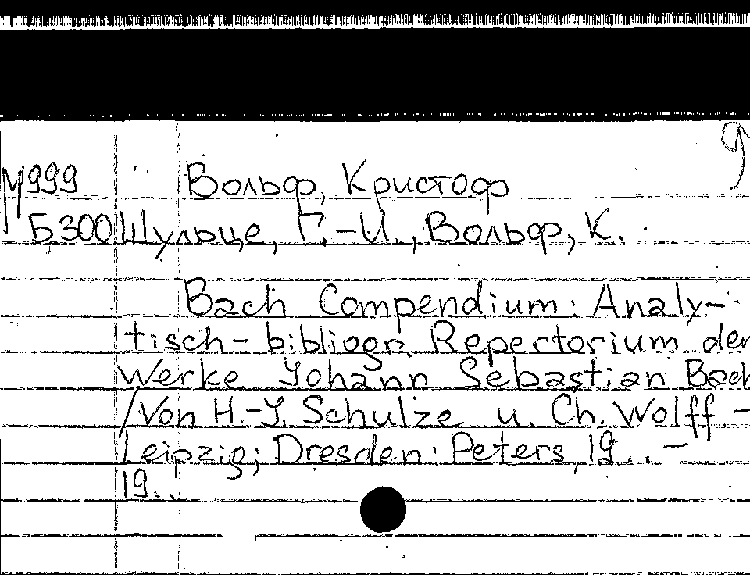 9
М999 Вольф, Кристоф
Б300 Шульце, Г.-И., Вольф, К.
Bach Compendium: Analy-
tisch-bibliogr. Repertorium der
Werke Johann Sebastian Bach
/Von H.-J. Schulze u. Ch. Wolff –
Leipzig; Dresden: Peters, 19.. –
19..